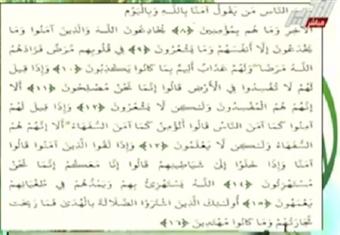 النَّاسِ مَن يَقُولُ آمَنَّا بِاللَّهِ وَبِالْيَوْمِ
مباشر
الْآخِرِ وَمَا هُم بِمُؤْمِنِينَ ﴿٨﴾ يُخَادِعُونَ اللَّهَ وَالَّذِينَ آمَنُوا وَمَا
يَخْدَعُونَ إِلَّا أَنفُسَهُمْ وَمَا يَشْعُرُونَ ﴿٩﴾ فِي قُلُوبِهِم مَّرَضٌ فَزَادَهُمُ
اللَّهُ مَرَضًا وَلَهُمْ عَذَابٌ أَلِيمٌ بِمَا كَانُوا يَكْذِبُونَ ﴿١٠﴾ وَإِذَا قِيلَ
لَهُمْ لَا تُفْسِدُوا فِي الْأَرْضِ قَالُوا إِنَّمَا نَحْنُ مُصْلِحُونَ ﴿١١﴾ أَلَا
إِنَّهُمْ هُمُ الْمُفْسِدُونَ وَلَٰكِن لَّا يَشْعُرُونَ ﴿١٢﴾ وَإِذَا قِيلَ لَهُمْ
آمِنُوا كَمَا آمَنَ النَّاسُ قَالُوا أَنُؤْمِنُ كَمَا آمَنَ السُّفَهَاءُ أَلَا إِنَّهُمْ هُمُ
السُّفَهَاءُ وَلَٰكِن لَّا يَعْلَمُونَ ﴿١٣﴾ وَإِذَا لَقُوا الَّذِينَ آمَنُوا قَالُوا
آمَنَّا وَإِذَا خَلَوْا إِلَىٰ شَيَاطِينِهِمْ قَالُوا إِنَّا مَعَكُمْ إِنَّمَا نَحْنُ
مُسْتَهْزِئُونَ ﴿١٤﴾ اللَّهُ يَسْتَهْزِئُ بِهِمْ وَيَمُدُّهُمْ فِي طُغْيَانِهِمْ
يَعْمَهُونَ ﴿١٥﴾ أُولَٰئِكَ الَّذِينَ اشْتَرَوُا الضَّلَالَةَ بِالْهُدَىٰ فَمَا رَبِحَت
تِّجَارَتُهُمْ وَمَا كَانُوا مُهْتَدِينَ ﴿١٦﴾